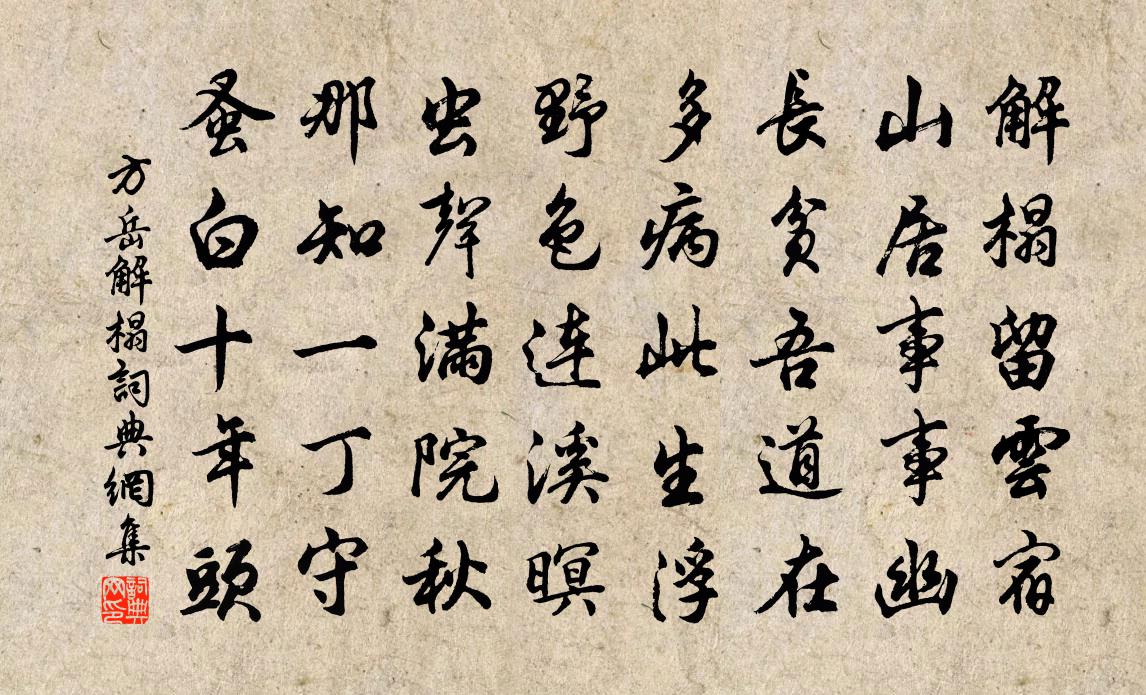 解榻留雲宿
山居事事幽
長貧吾道在
多病此生浮
野色連溪暝
虫聲滿院秋
那知一丁守
蚤白十年頭
方岳解榻詞典網集
詞典網印